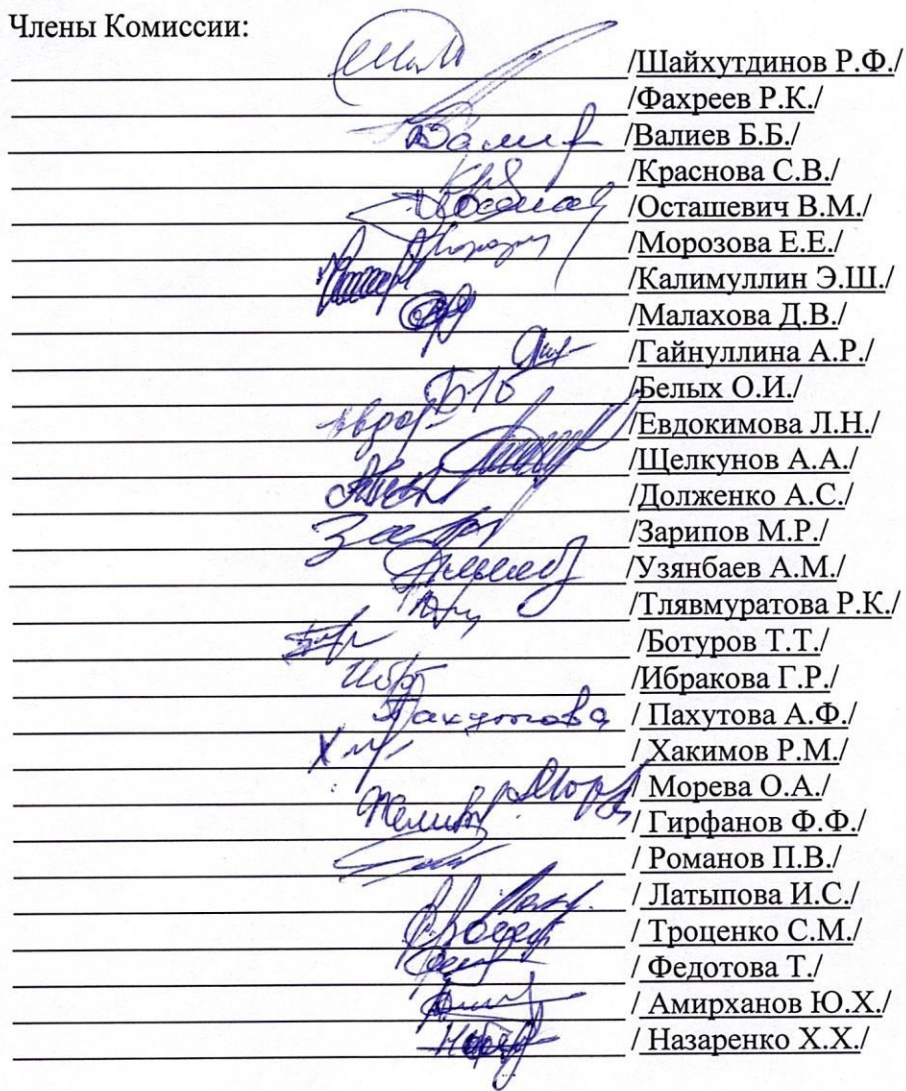 Члены Комиссии:
/Шайхутдинов Р.Ф./
/Фахреев Р.К./
/Валиев Б.Б./
/Краснова С.В./
/Осташевич В.М./
/Морозова Е.Е./
/Калимуллин Э.Ш./
/Малахова Д.В./
/Гайнуллина А.Р./
/Белых О.И./
/Евдокимова Л.Н./
/Щелкунов А.А./
/Долженко А.С./
/Зарипов М.Р./
/Узянбаев А.М./
/Тлявмуратова Р.К./
/Ботуров Т.Т./
/Ибракова Г.Р./
Пахутова / Пахутова А.Ф./
/ Хакимов Р.М./
/ Морева О.А./
/ Гирфанов Ф.Ф./
/ Романов П.В./
/ Латыпова И.С./
/ Троценко С.М./
/ Федотова Т./
/ Амирханов Ю.Х./
/ Назаренко Х.Х./